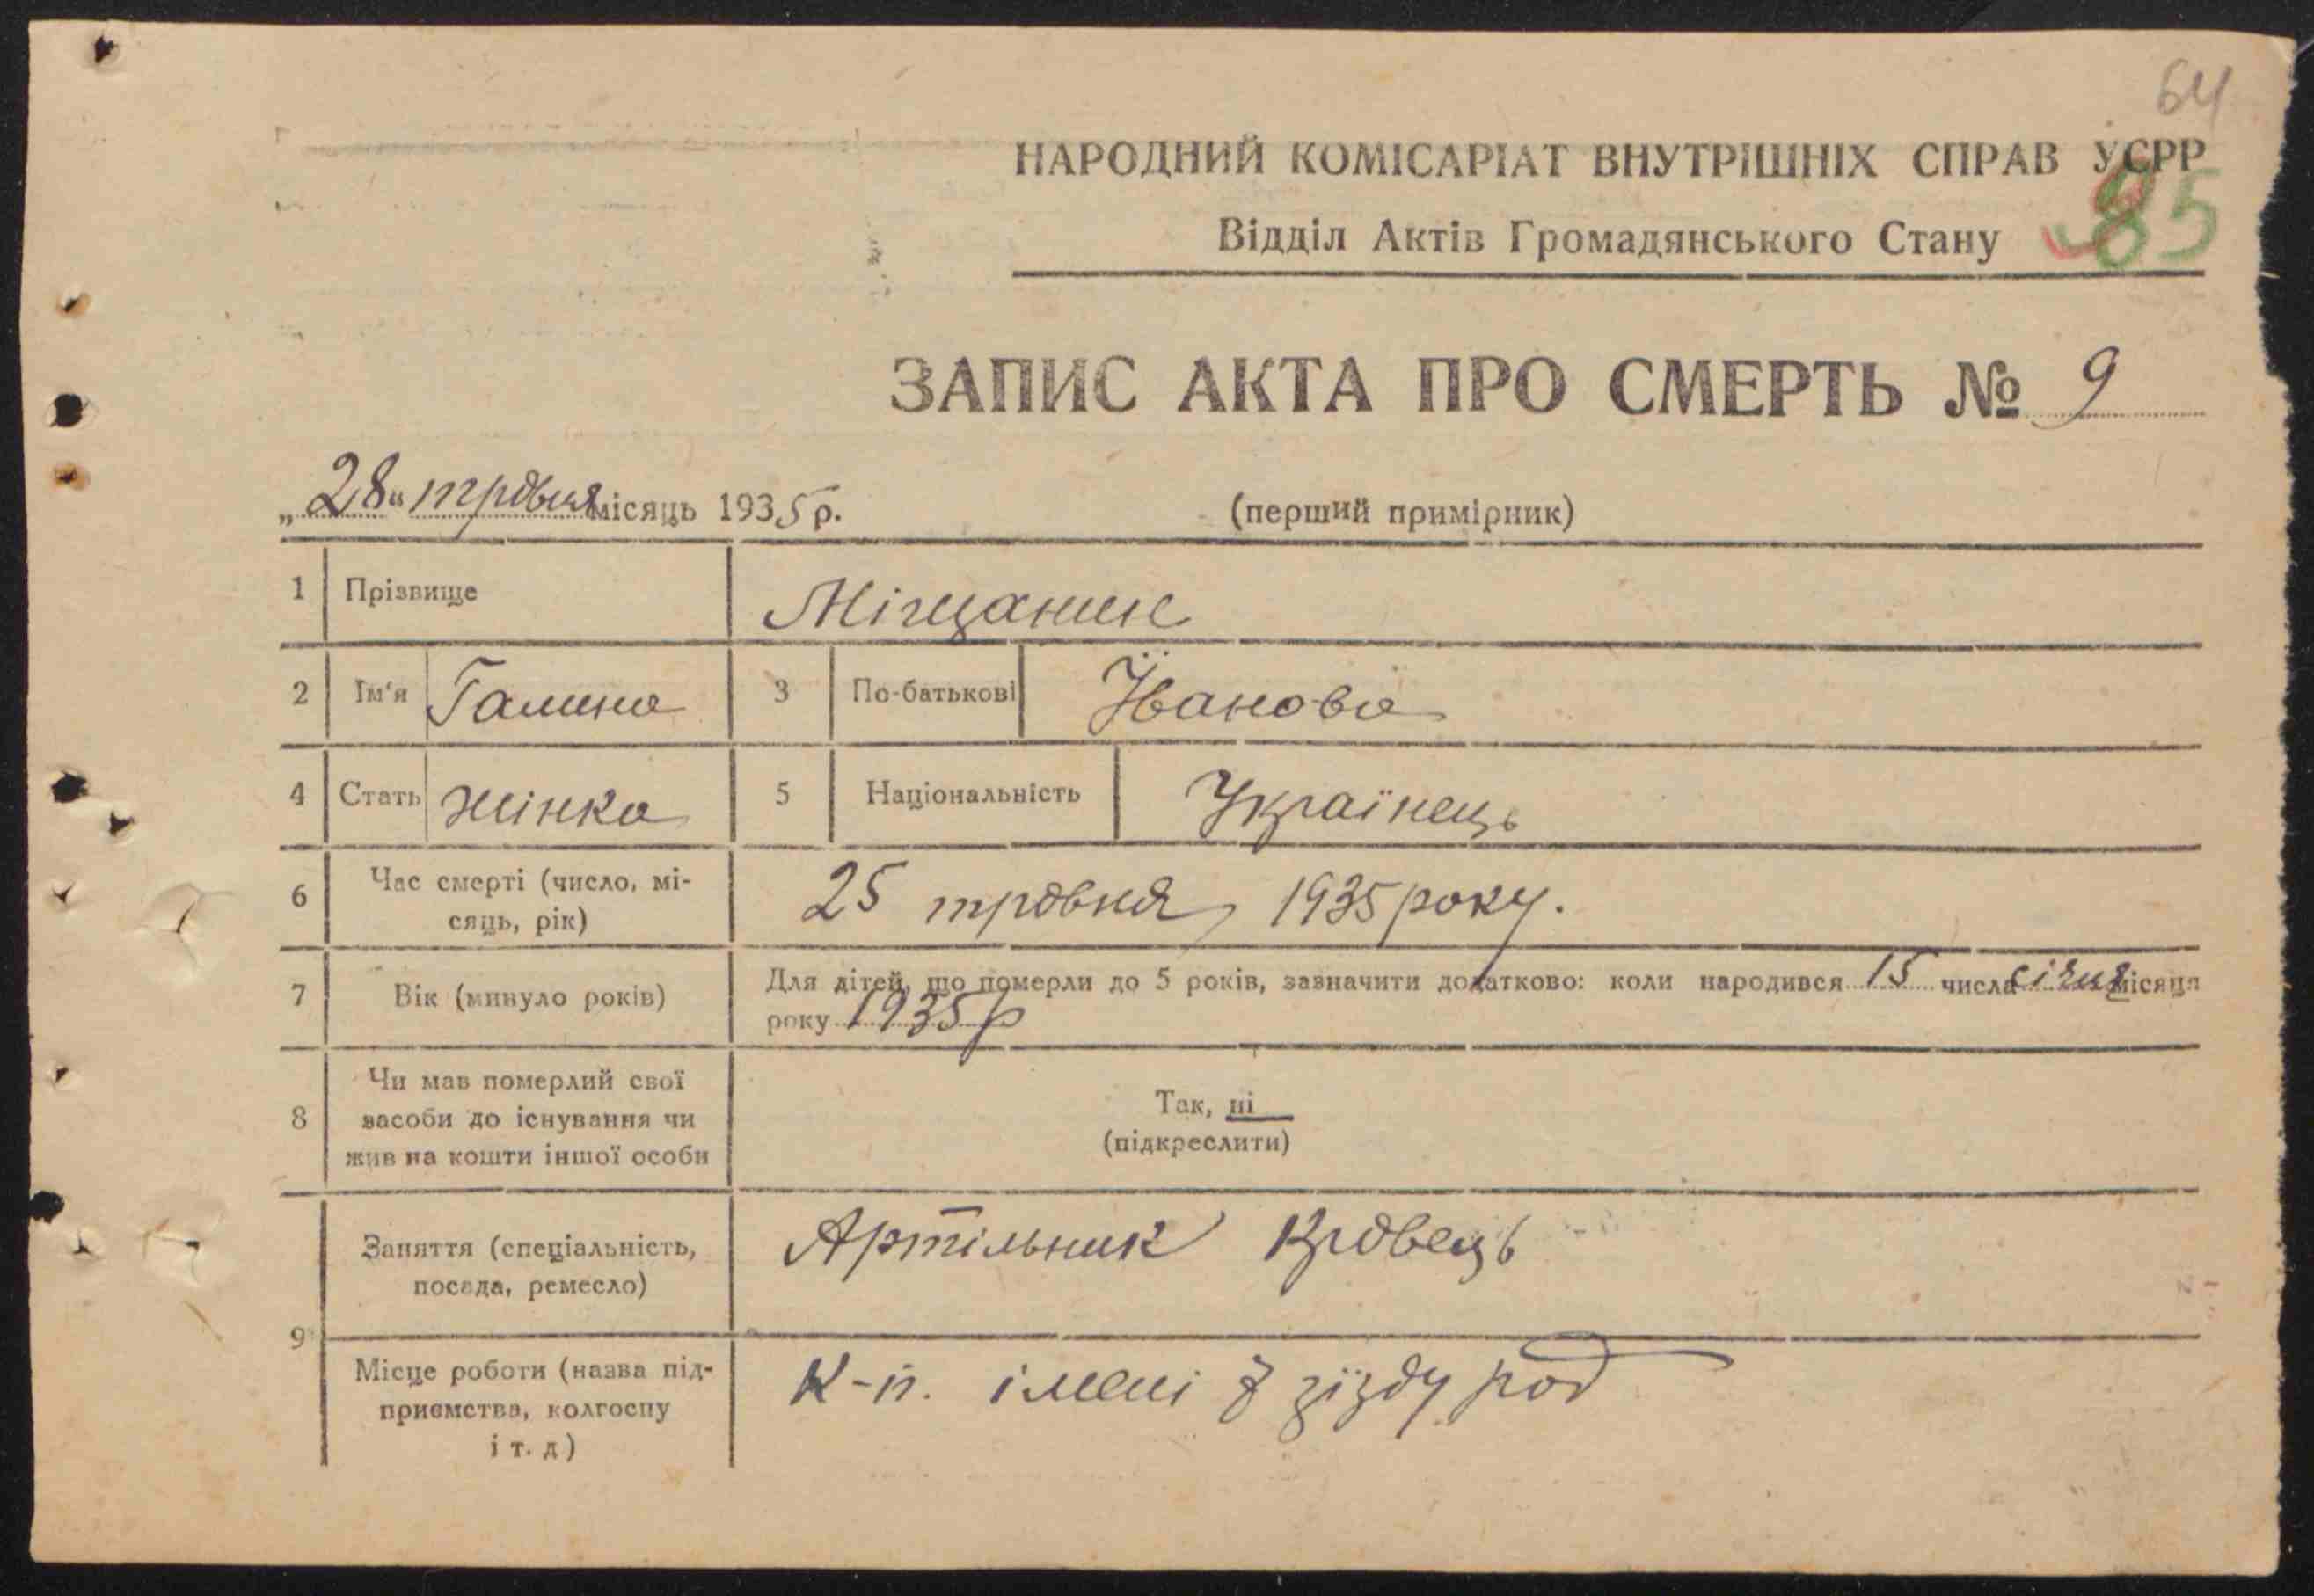 64
НАРОДНИЙ КОМІСАРІАТ ВНУТРІШНІХ СПРАВ УСРР
Відділ Актів Громадянського Стану 85
ЗАПИС АКТА ПРО СМЕРТЬ № 9
„28“ тровня місяць 1935 р. (перший примірник)
1 Прізвище Міщаник
2 Ім'я Галина 3 По-батькові Іванова
4 Стать жінка 5 Національність Українець
6 Час смерті (число, мі-
сяць, рік) 25 тровня 1935 року.
7 Вік (минуло років) Для дітей, що померли до 5 років, зазначити додатково: коли народився 15 числа січня місяця
року 1935 р
8 Чи мав померлий свої
засоби до існування чи
жив на кошти іншої особи
Так, ні
(підкреслити)
9 Заняття (спеціальність,
посада, ремесло) Артільник Кровець
Місце роботи (назва під-
приємства, колгоспу
і т. д) К-п. імені 7 зїзду рад